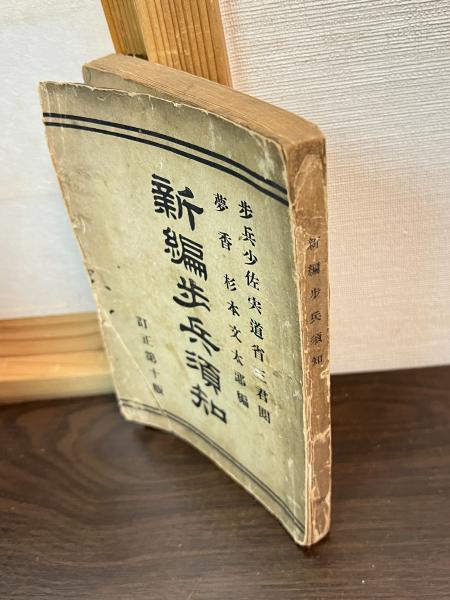 歩兵少佐実道省三君閲
夢香杉本文太郎編
新編歩兵須知
訂正第十版
新編歩兵須知